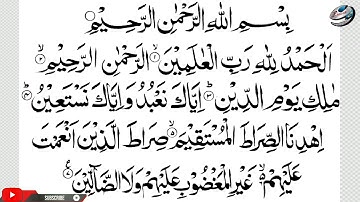 بِسْمِ اللهِ الرَّحْمٰنِ الرَّحِيْمِ
اَلْحَمْدُ لِلهِ رَبِّ الْعٰلَمِيْنَ ۙ الرَّحْمٰنِ الرَّحِيْمِ ۙ
مٰلِكِ يَوْمِ الدِّيْنِ ؕ اِيَّاكَ نَعْبُدُ وَاِيَّاكَ نَسْتَعِيْنُ ؕ
اِهْدِنَا الصِّرَاطَ الْمُسْتَقِيْمَ ۙ صِرَاطَ الَّذِيْنَ اَنْعَمْتَ
عَلَيْهِمْ ۙ غَيْرِ الْمَغْضُوْبِ عَلَيْهِمْ وَلَا الضَّآلِّيْنَ
SUBSCRIBE